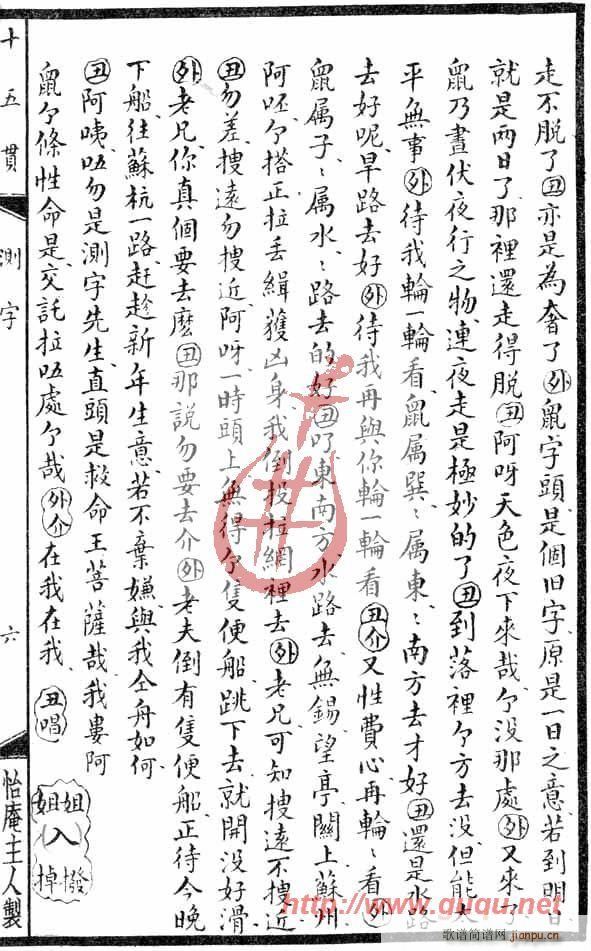 走不脫了丑亦是為奢了外鼠字頭是個旧字原是一日之意若到明日
就是兩日了那裡還走得脫丑阿呀天色夜下來哉个没那處外又來了
鼠乃晝伏夜行之物連夜走是極妙的了丑到落裡个方去没但能太
平無事外待我輪一輪看鼠属巽〻属東〻南方去才好丑還是水路
去好呢旱路去好外待我再與你輪一輪看丑介又性費心再輪〻看外
鼠属子〻属水〻路去的好丑叮東南方水路去無錫望亭關上蘇州
阿呸个搭正拉丢緝獲凶身我倒投拉網裡去外老兄可知搜遠不搜近
丑勿差搜遠勿搜近阿呀一時頭上無得个隻便船跳下去就開没好滑
外老兄你真個要去麽丑那説勿要去介外老夫倒有隻便船正待今晚
下船往蘇杭一路赶趁新年生意若不棄嫌與我仝舟如何
丑阿咦唔勿是測字先生直頭是救命王菩薩哉我婁阿
鼠个條性命是交託拉唔處个哉外介在我在我丑唱
姐姐入撥掉
十五貫
測字
六
怡庵主人製
http://www.guqu.net
歌谱简谱网
jianpu.cn